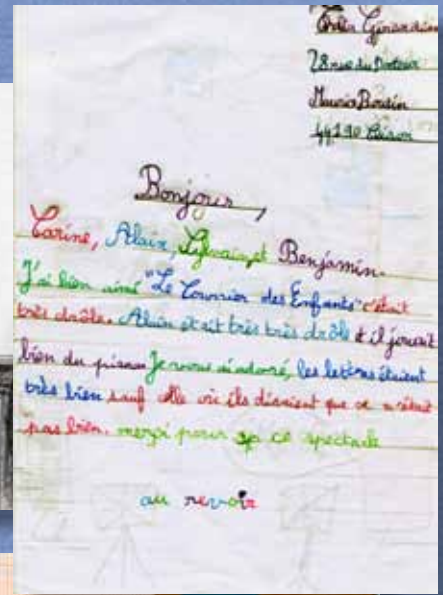 28 rue du Docteur
Maurice
44190 Clisson
Bonjour,
Carine, Alain, Sylvain, et Benjamin.
J'ai bien aimé "Le Courrier des Enfants" c'était
très drôle. Alain était très très drôle et il jouait
bien du piano Je vous ai adoré, les lettres étaient
très bien sauf elle où ils disaient que ce n'était
pas bien. merçi pour ce spectacle
au revoir